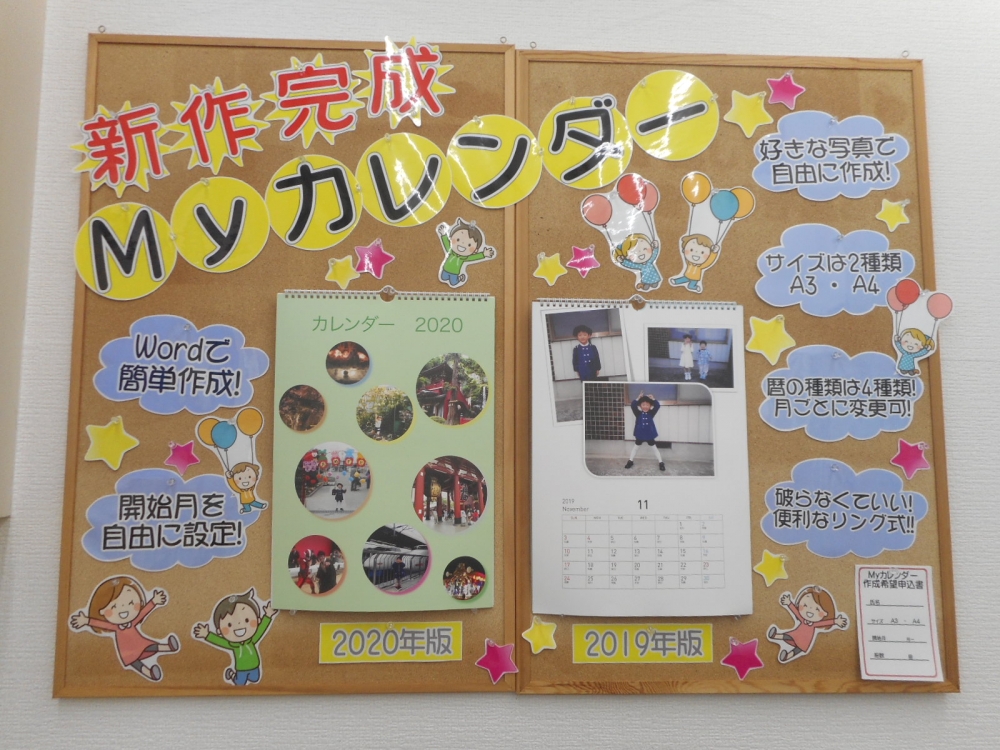 新作完成
Myカレンダー
好きな写真で
自由に作成!
サイズは2種類
A3・A4
Wordで
簡単作成!
暦の種類は4種類!
月ごとに変更可!
開始月を
自由に設定!
破らなくていい!
便利なリング式!!
カレンダー 2020
2019
November
11
2020年版
2019年版
Myカレンダー
作成希望申込書
氏名
サイズ A3・A4